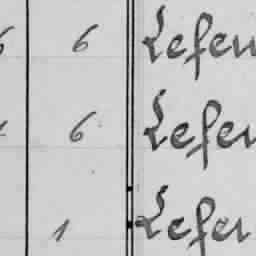 6 Lefeu
6 Lefeu
1 Lefer